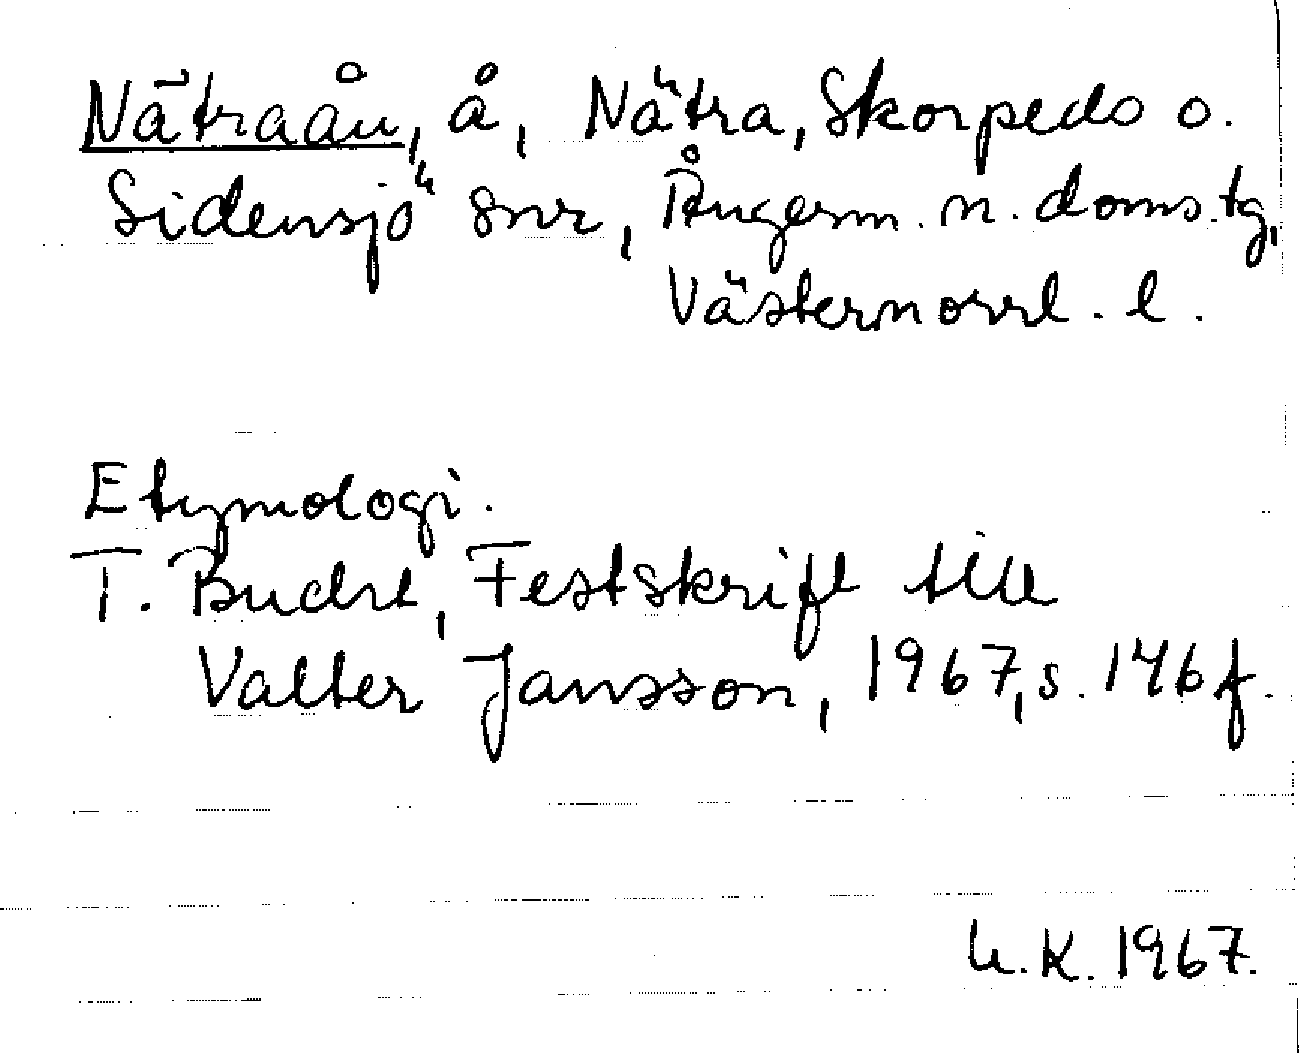 Nätraån, å, Nätra, Skorpeds o.
Sidensjö snr, Ångerm. n. doms.tg,
Västernorrl. l.
Etymologi.
T. Bucht, Festskrift till
Valter Jansson, 1967, s. 146 f.
U.K. 1967.